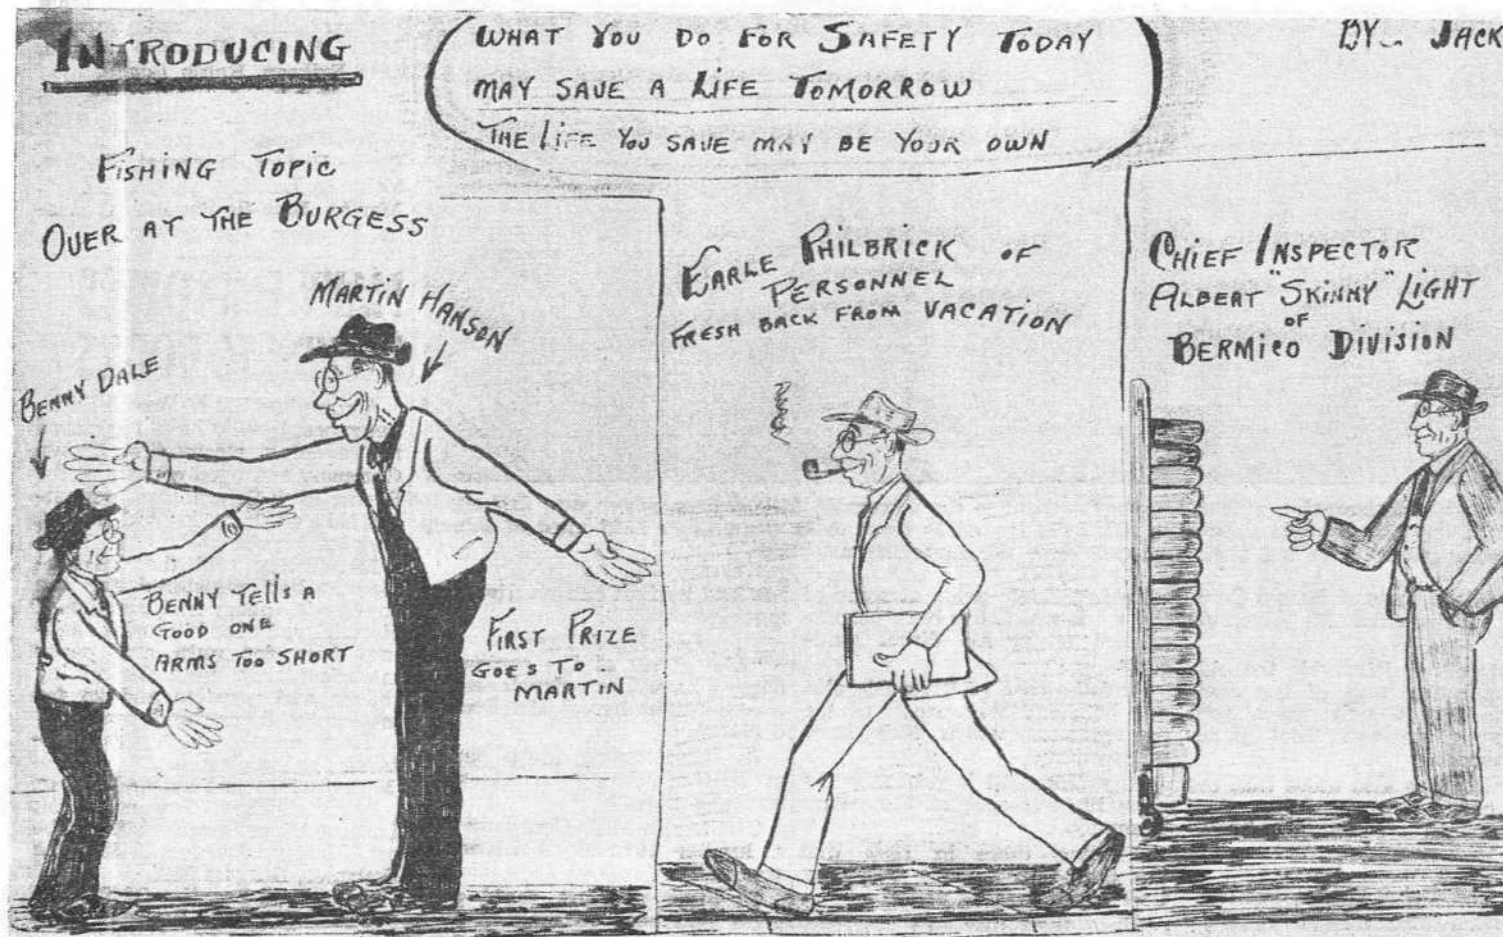 INTRODUCING
WHAT YOU DO FOR SAFETY TODAY
MAY SAVE A LIFE TOMORROW
THE LIFE YOU SAVE MAY BE YOUR OWN
BY.. JACK
FISHING TOPIC
OVER AT THE BURGESS
MARTIN HANSON
BENNY DALE
BENNY TELLS A
GOOD ONE
ARMS TOO SHORT
FIRST PRIZE
GOES TO
MARTIN
EARLE PHILBRICK OF
PERSONNEL
FRESH BACK FROM VACATION
CHIEF INSPECTOR
ALBERT "SKINNY" LIGHT
OF
BERMICO DIVISION